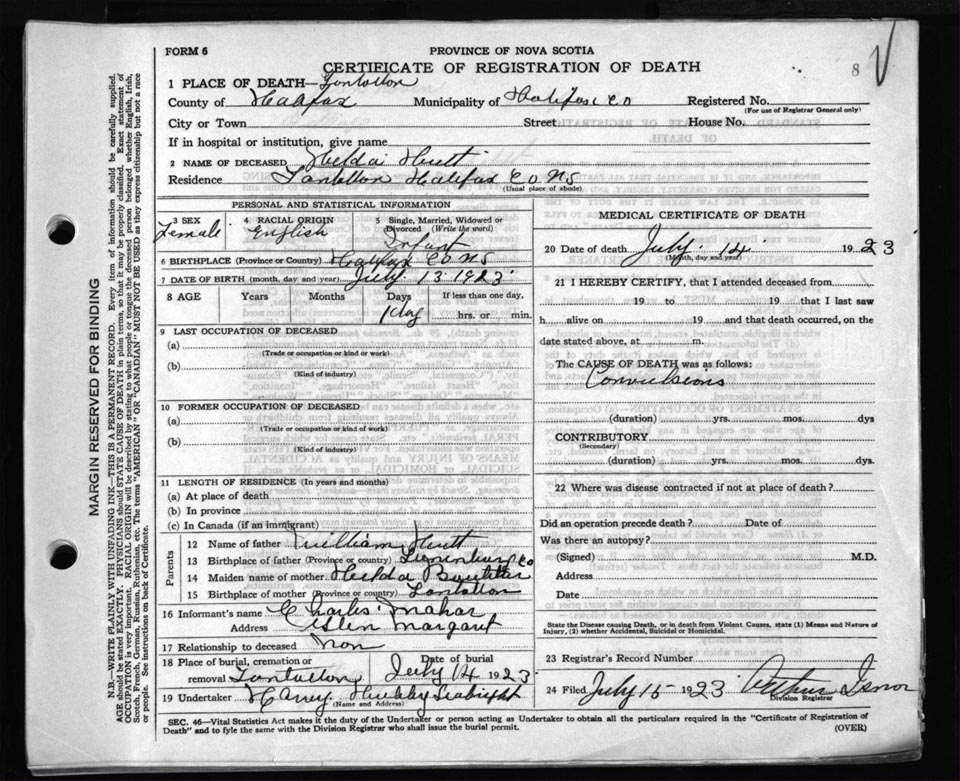 FORM 6
PROVINCE OF NOVA SCOTIA
CERTIFICATE OF REGISTRATION OF DEATH
8
1 PLACE OF DEATH—Tantallon
County of Halifax Municipality of Halifax Co Registered No.
(For use of Registrar General only)
City or Town Street House No.
If in hospital or institution, give name
2 NAME OF DECEASED Helda Hutt
Residence Tantallon Halifax Co NS
(Usual place of abode)
PERSONAL AND STATISTICAL INFORMATION
3 SEX Female
4 RACIAL ORIGIN English
5 Single, Married, Widowed or Divorced (Write the word) Infant
6 BIRTHPLACE (Province or Country) Halifax Co NS
7 DATE OF BIRTH (month, day, and year) July 13 1923
8 AGE Years Months Days If less than one day,
1 day hrs. or min.
9 LAST OCCUPATION OF DECEASED
(a)
(Trade or occupation or kind of work)
(b)
(Kind of industry)
10 FORMER OCCUPATION OF DECEASED
(a)
(Trade or occupation or kind of work)
(b)
(Kind of industry)
11 LENGTH OF RESIDENCE (In years and months)
(a) At place of death
(b) In province
(c) In Canada (if an immigrant)
Parents
12 Name of father William Hutt
13 Birthplace of father (Province or country) Lunenburg Co
14 Maiden name of mother Helda
15 Birthplace of mother (Province or country) Tantallon
16 Informant's name Charles Mahar
Address Glen Margaret
17 Relationship to deceased Non
18 Place of burial, cremation or Date of burial
removal Tantallon July 14 1923
19 Undertaker Harry Hubley Seabright
(Name and Address)
MEDICAL CERTIFICATE OF DEATH
20 Date of death July 14 1923
(Month, day and year)
21 I HEREBY CERTIFY, that I attended deceased from
19 to 19 that I last saw
h alive on 19 and that death occurred, on the
date stated above, at m.
The CAUSE OF DEATH was as follows:
Convulsions
(duration) yrs. mos. dys
CONTRIBUTORY
(Secondary)
(duration) yrs. mos. dys.
22 Where was disease contracted if not at place of death?
Did an operation precede death? Date of
Was there an autopsy?
(Signed) M.D.
Address
Date
State the Disease causing Death, or in death from Violent Causes, state (1) Means and Nature of
Injury, (2) whether Accidental, Suicidal or Homicidal.
23 Registrar's Record Number
24 Filed July 15 1923 Arthur Isnor
Division Registrar
SEC. 46—Vital Statistics Act makes it the duty of the Undertaker or person acting as Undertaker to obtain all the particulars required in the "Certificate of Registration of
Death" and to fyle the same with the Division Registrar who shall issue the burial permit.
(OVER)
MARGIN RESERVED FOR BINDING
N.B.—WRITE PLAINLY WITH UNFADING INK—THIS IS A PERMANENT RECORD. Every item of information should be carefully supplied.
AGE should be stated EXACTLY. PHYSICIANS should STATE CAUSE OF DEATH in plain terms, so that it may be properly classified. Exact statement of
OCCUPATION is very important. RACIAL ORIGIN will be described by stating to what people or tongue the deceased person belonged whether English, Irish,
Scotch, French, German, Russian, Ruthenian, etc. The terms "AMERICAN" OR "CANADIAN" MUST NOT BE USED as they express citizenship but not a race
or people. See instructions on back of Certificate.